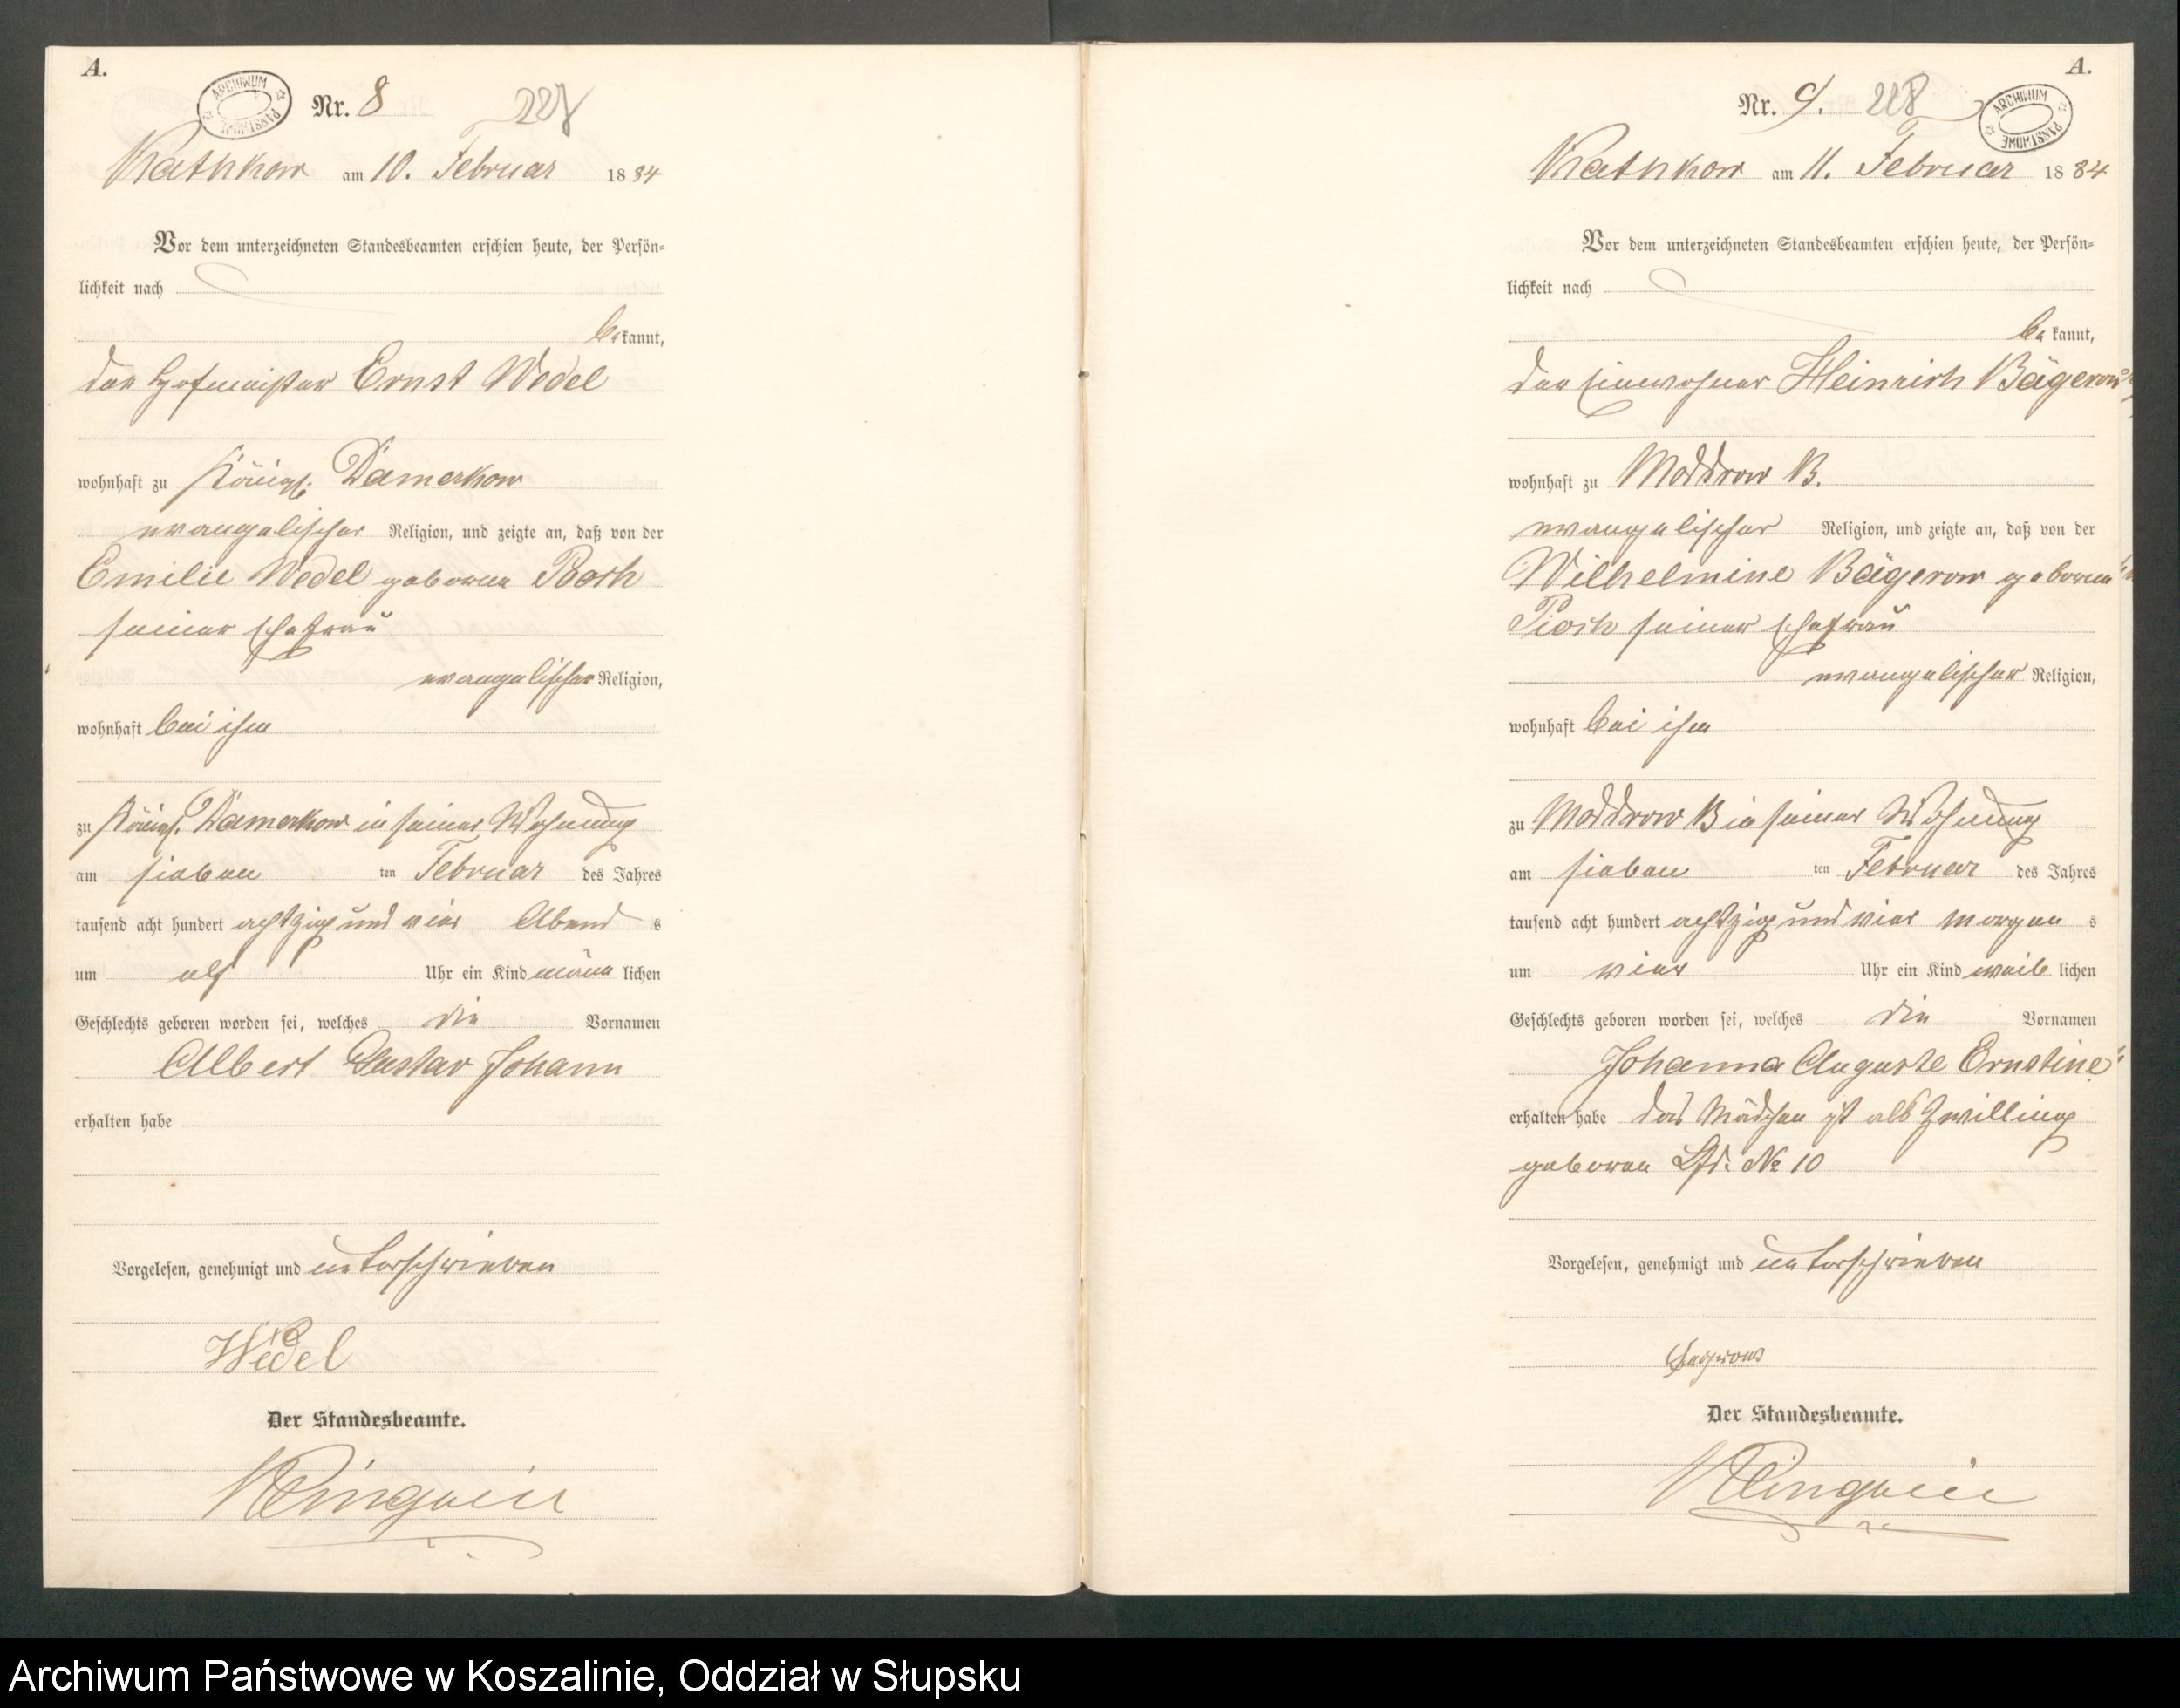 A.
ARCHIWUM PAŃSTWOWE
Nr. 8
Kathkow am 10. Februar 1884
Vor dem unterzeichneten Standesbeamten erschien heute, der Persön-
lichkeit nach
bekannt,
der Hofmeister Ernst Wedel
wohnhaft zu Königl. Damerkow
evangelischer Religion, und zeigte an, daß von der
Emilie Wedel geborene
seiner Ehefrau
evangelischer Religion,
wohnhaft bei ihm
zu Königl. Damerkow in seiner Wohnung
am sieben ten Februar des Jahres
tausend acht hundert achtzig und vier Abend s
um elf Uhr ein Kind männ lichen
Geschlechts geboren worden sei, welches die Vornamen
Albert Gustav Johann
erhalten habe
Vorgelesen, genehmigt und unterschrieben
Wedel
Der Standesbeamte.
A.
Nr. 9. 218
ARCHIWUM PAŃSTWOWE
Kathkow am 11. Februar 1884
Vor dem unterzeichneten Standesbeamten erschien heute, der Persön-
lichkeit nach
be kannt,
der Einwohner Heinrich Bägerow
wohnhaft zu Moddrow B.
evangelischer Religion, und zeigte an, daß von der
Wilhelmine Bägerow geborene
Pioch seiner Ehefrau
evangelischer Religion,
wohnhaft bei ihm
zu Moddrow B in seiner Wohnung
am sieben ten Februar des Jahres
tausend acht hundert achtzig und vier morgen s
um vier Uhr ein Kind weib lichen
Geschlechts geboren worden sei, welches die Vornamen
Johanna Auguste Ernstine
erhalten habe das Mädchen ist als Zwilling
geboren Lfd. No 10
Vorgelesen, genehmigt und unterschrieben
Der Standesbeamte.
Archiwum Państwowe w Koszalinie, Oddział w Słupsku